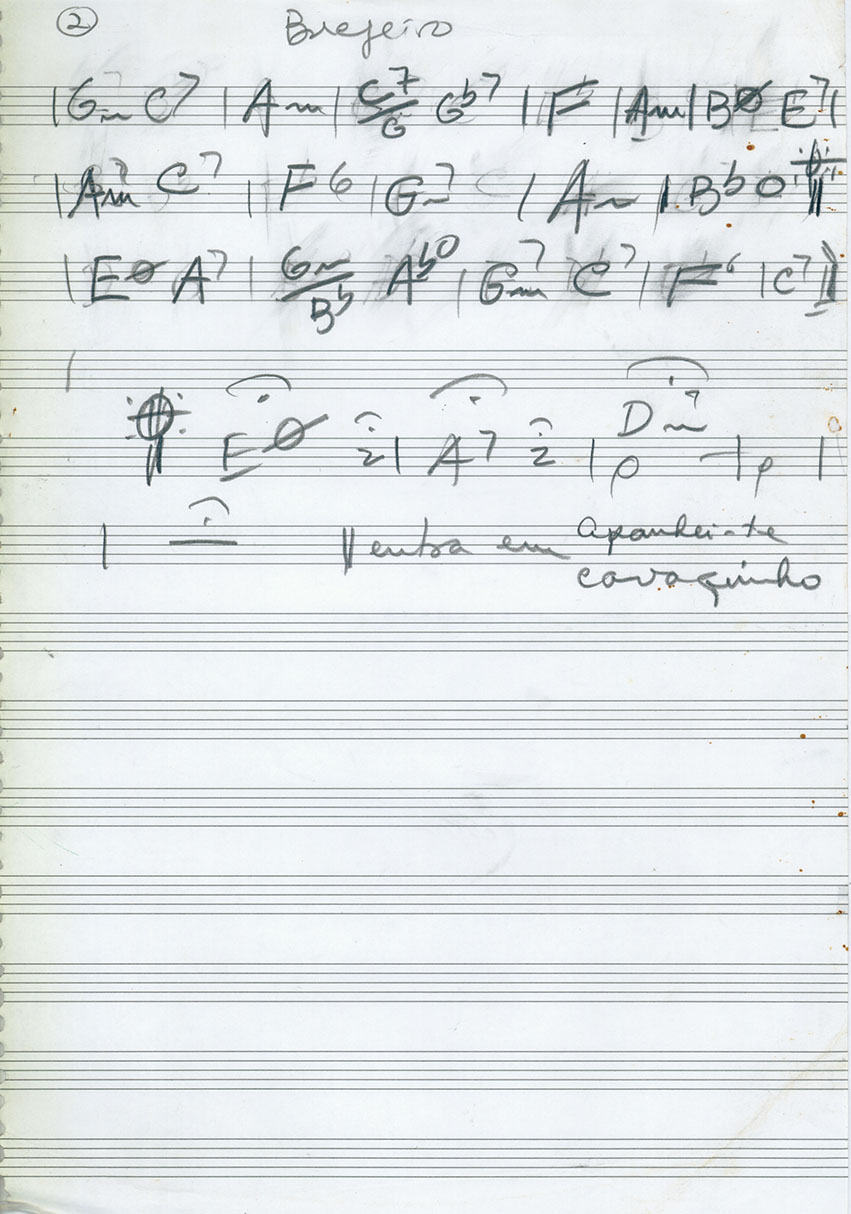 2 Brejeiro
| Gm7 C7 | Am | C7/G Gb7 | F | Am | Bø E7 |
| Am7 C7 | F6 | Gm7 C | Am | Bbo
| Eø A7 | Gm/Bb Abo | Gm7 C7 | F6 | C7 ‖
Eø 2 | A7 2 | Dm7 |
| — ‖ entra em apanhei-te
cavaquinho